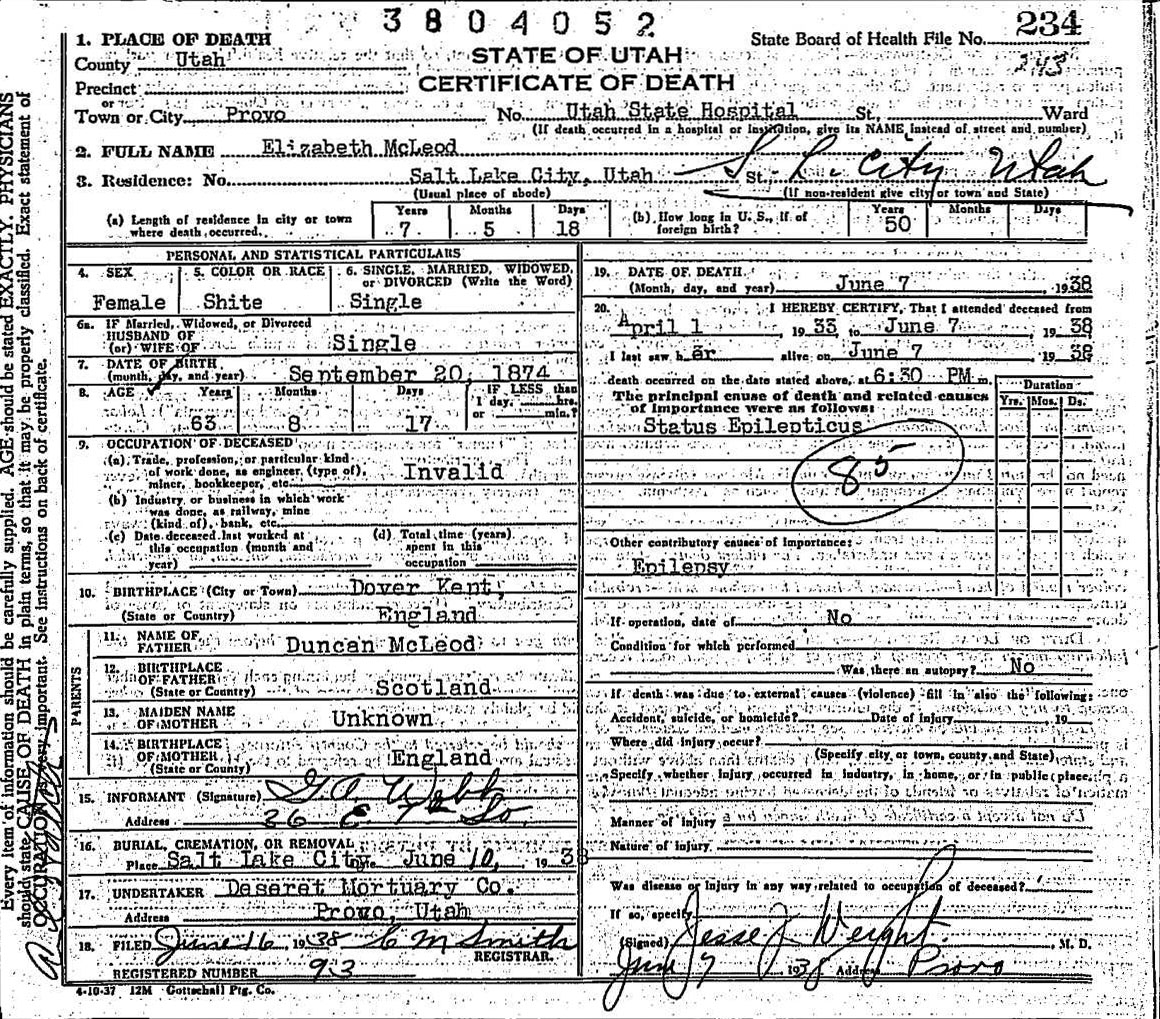 3804052
234
1. PLACE OF DEATH
STATE OF UTAH
State Board of Health File No.
County Utah
243
CERTIFICATE OF DEATH
Precinct
or
Town or City Provo No. Utah State Hospital St., Ward
(If death occurred in a hospital or institution, give its NAME instead of street and number)
2. FULL NAME Elizabeth McLeod
3. Residence: No. Salt Lake City, Utah St. S. L. City Utah
(Usual place of abode) (If non-resident give city or town and State)
(a) Length of residence in city or town where death occurred. Years 7 Months 5 Days 18
(b) How long in U. S., if of foreign birth? Years 50 Months Days
PERSONAL AND STATISTICAL PARTICULARS
4. SEX
Female
5. COLOR OR RACE
Shite
6. SINGLE, MARRIED, WIDOWED, or DIVORCED (Write the Word)
Single
6a. IF Married, Widowed, or Divorced
HUSBAND OF
(or) WIFE OF Single
7. DATE OF BIRTH
(month, day, and year) September 20, 1874
8. AGE Years Months Days IF LESS than
1 day, hrs.
or min.?
63 8 17
9. OCCUPATION OF DECEASED
(a) Trade, profession, or particular kind
of work done, as engineer, (type of),
miner, bookkeeper, etc. Invalid
(b) Industry or business in which work
was done, as railway, mine
(kind of), bank, etc.
(c) Date deceased last worked at
this occupation (month and
year)
(d) Total time (years)
spent in this
occupation
10. BIRTHPLACE (City or Town) Dover Kent,
(State or Country) England
PARENTS
11. NAME OF
FATHER Duncan McLeod
12. BIRTHPLACE
OF FATHER
(State or Country) Scotland
13. MAIDEN NAME
OF MOTHER Unknown
14. BIRTHPLACE
OF MOTHER
(State or County) England
15. INFORMANT (Signature) G. A. Webb
Address 36 E 7th So.
16. BURIAL, CREMATION, OR REMOVAL
Place Salt Lake City. June 10, 1938
17. UNDERTAKER Deseret Mortuary Co.
Address Provo, Utah
18. FILED June 16, 1938 C M Smith
REGISTRAR.
REGISTERED NUMBER 93
4-10-37 12M Gottschall Ptg. Co.
19. DATE OF DEATH
(Month, day, and year) June 7 1938
20. I HEREBY CERTIFY, That I attended deceased from
April 1 1933 to June 7 1938
I last saw her alive on June 7 1938
death occurred on the date stated above, at 6:30 PM m.
The principal cause of death and related causes
of importance were as follows:
Duration
Yrs. Mos. Ds.
Status Epilepticus
85
Other contributory causes of importance:
Epilepsy
If operation, date of No
Condition for which performed
Was there an autopsy? No
If death was due to external causes (violence) fill in also the following:
Accident, suicide, or homicide? Date of injury 19
Where did injury occur?
(Specify city, or town, county, and State)
Specify whether injury occurred in industry, in home, or in public place.
Manner of injury
Nature of injury
Was disease or injury in any way related to occupation of deceased?
If so, specify
(Signed) Jesse J Weight, M. D.
June 7 1938 Address Provo
Every item of information should be carefully supplied. AGE should be stated EXACTLY. PHYSICIANS
should state CAUSE OF DEATH in plain terms, so that it may be properly classified. Exact statement of
OCCUPATION very important. See instructions on back of certificate.